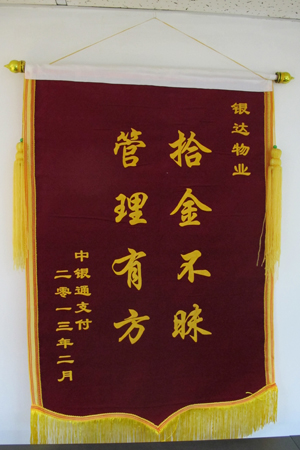 银达物业
拾金不昧
管理有方
中银通支付
二零一三年二月